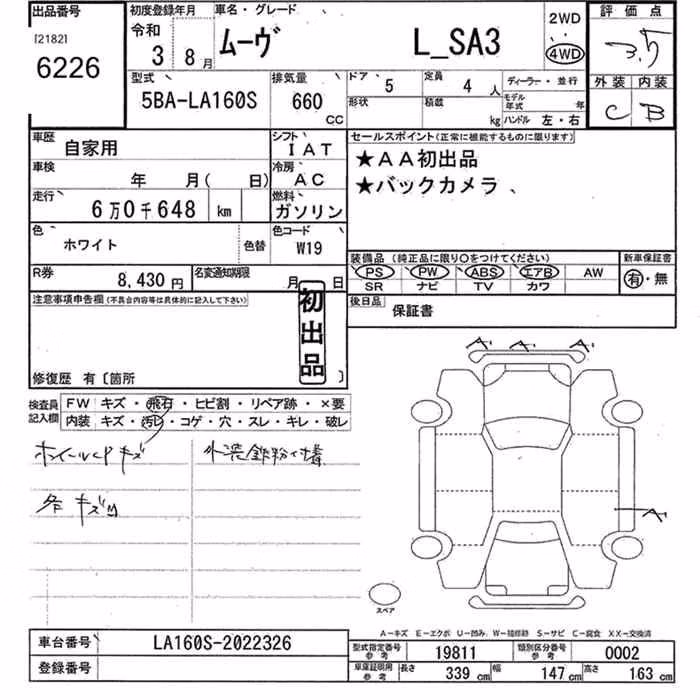 出品番号
[2182]
6226
初度登録年月
令和
3 8月
車名・グレード
ムーヴ L_SA3
2WD
4WD
評価点
3.5
外装 内装
C B
型式
5BA-LA160S
排気量
660
CC
ドア 5
定員 4 人
形状
積載 kg
ディーラー・並行
モデル年式 年
ハンドル 左・右
車歴 自家用
シフト IAT
車検 年 月( 日)
冷房 AC
走行 6万0千648 km
燃料 ガソリン
色 ホワイト
色替
色コード W19
セールスポイント(正常に機能するものに限ります)
★AA初出品
★バックカメラ
装備品 (純正品に限り○をつけてください)
新車保証書
PS PW ABS エアB AW
有・無
SR ナビ TV カワ
R券 8,430 円
名変通知期限 月 日
後日品 保証書
注意事項申告欄(不具合内容等は具体的に記入して下さい)
初出品
修復歴 有〔箇所 〕
検査員記入欄
FW キズ・飛石・ヒビ割・リペア跡・×要
内装 キズ・汚レ・コゲ・穴・スレ・キレ・破レ
ホイールCPキズ
外装鉄粉付着
各キズ凹
A A A
A
スペア
A−キズ E−エクボ U−凹み W−補修跡 S−サビ C−腐食 XX−交換済
車台番号 LA160S-2022326
登録番号
型式指定番号 参考 19811
類別区分番号 参考 0002
車庫証明用 参考 長さ 339 cm 幅 147 cm 高さ 163 cm